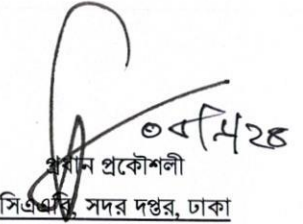 প্রধান প্রকৌশলী
সিএএবি, সদর দপ্তর, ঢাকা